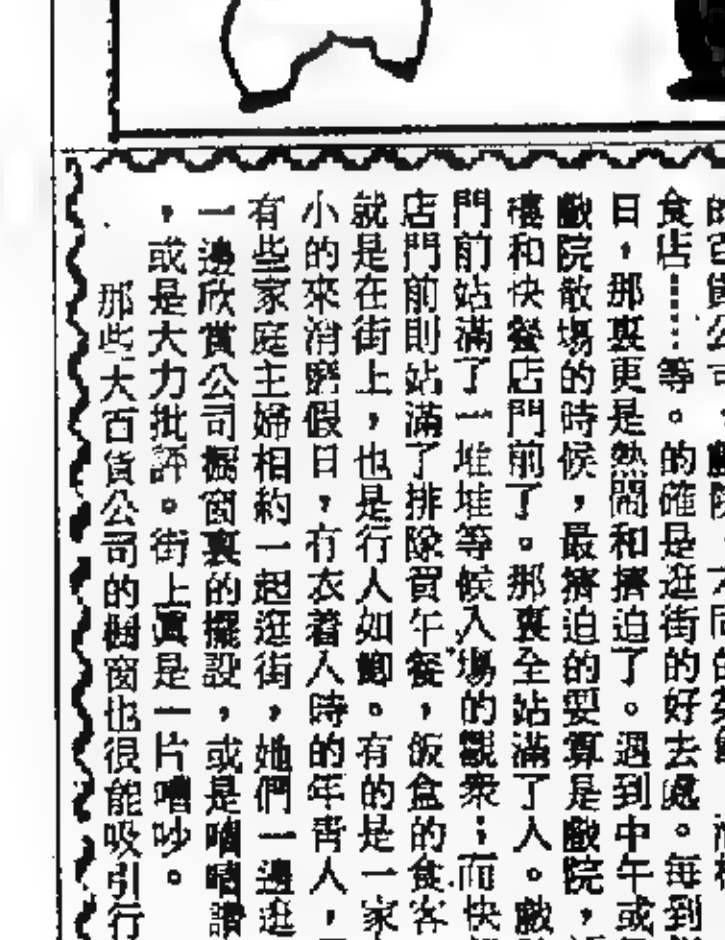 食店……等。的確是逛街的好去處。每到
日，那裏更是熱鬧和擠迫了。遇到中午或
戲院散場的時候，最擠迫的要算是戲院，
樓和快餐店門前了。那裏全站滿了人。戲
門前站滿了一堆堆等候入場的觀衆；而快
店門前則站滿了排隊買午餐，飯盒的食客
就是在街上，也是行人如鯽。有的是一家
小的來消磨假日，有衣着入時的年青人，
有些家庭主婦相約一起逛街，她們一邊逛
一邊欣賞公司橱窗裏的擺設，或是嘖嘖讚
，或是大力批評。街上真是一片嘈吵。
那些大百貨公司的橱窗也很能吸引行